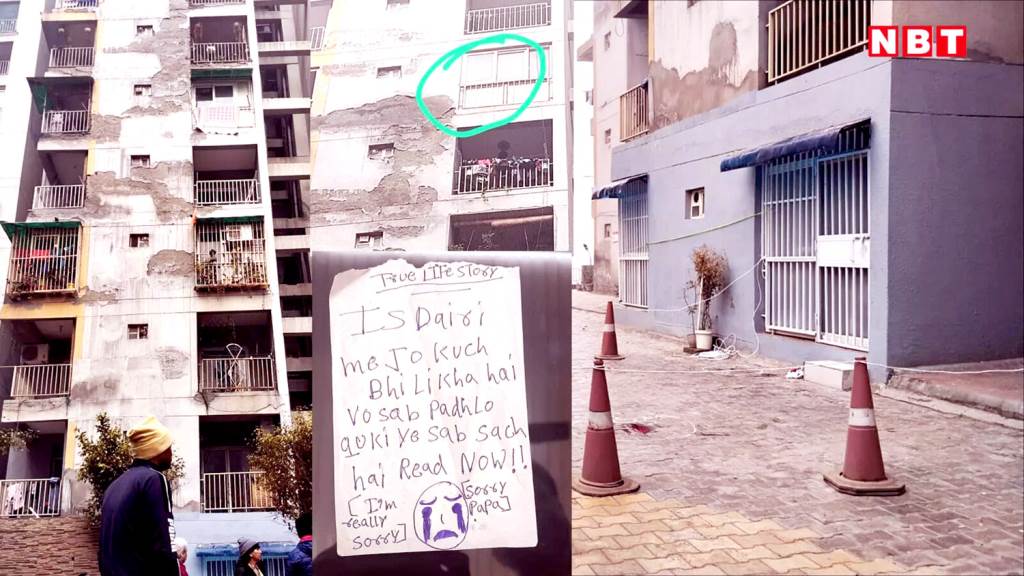 NBT
True LIFe Story
Is Dairi
me Jo Kuch
Bhi Likha hai
Vo sab Padhlo
quki Ye sab Sach
hai Read NOW!!
[I'm
really
sorry]
[sorry
Papa]